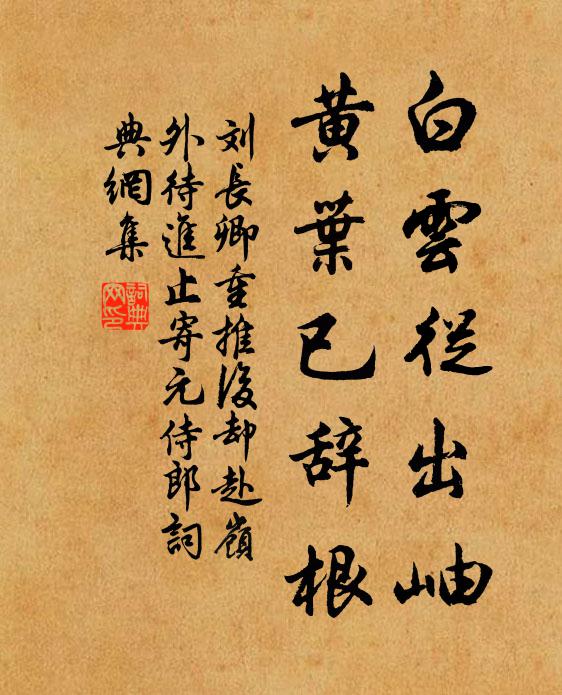 白雲從出岫
黃葉已辞根
刘長卿重推後却赴嶺
外待進止寄元侍郎詞
典網集
詞典網印